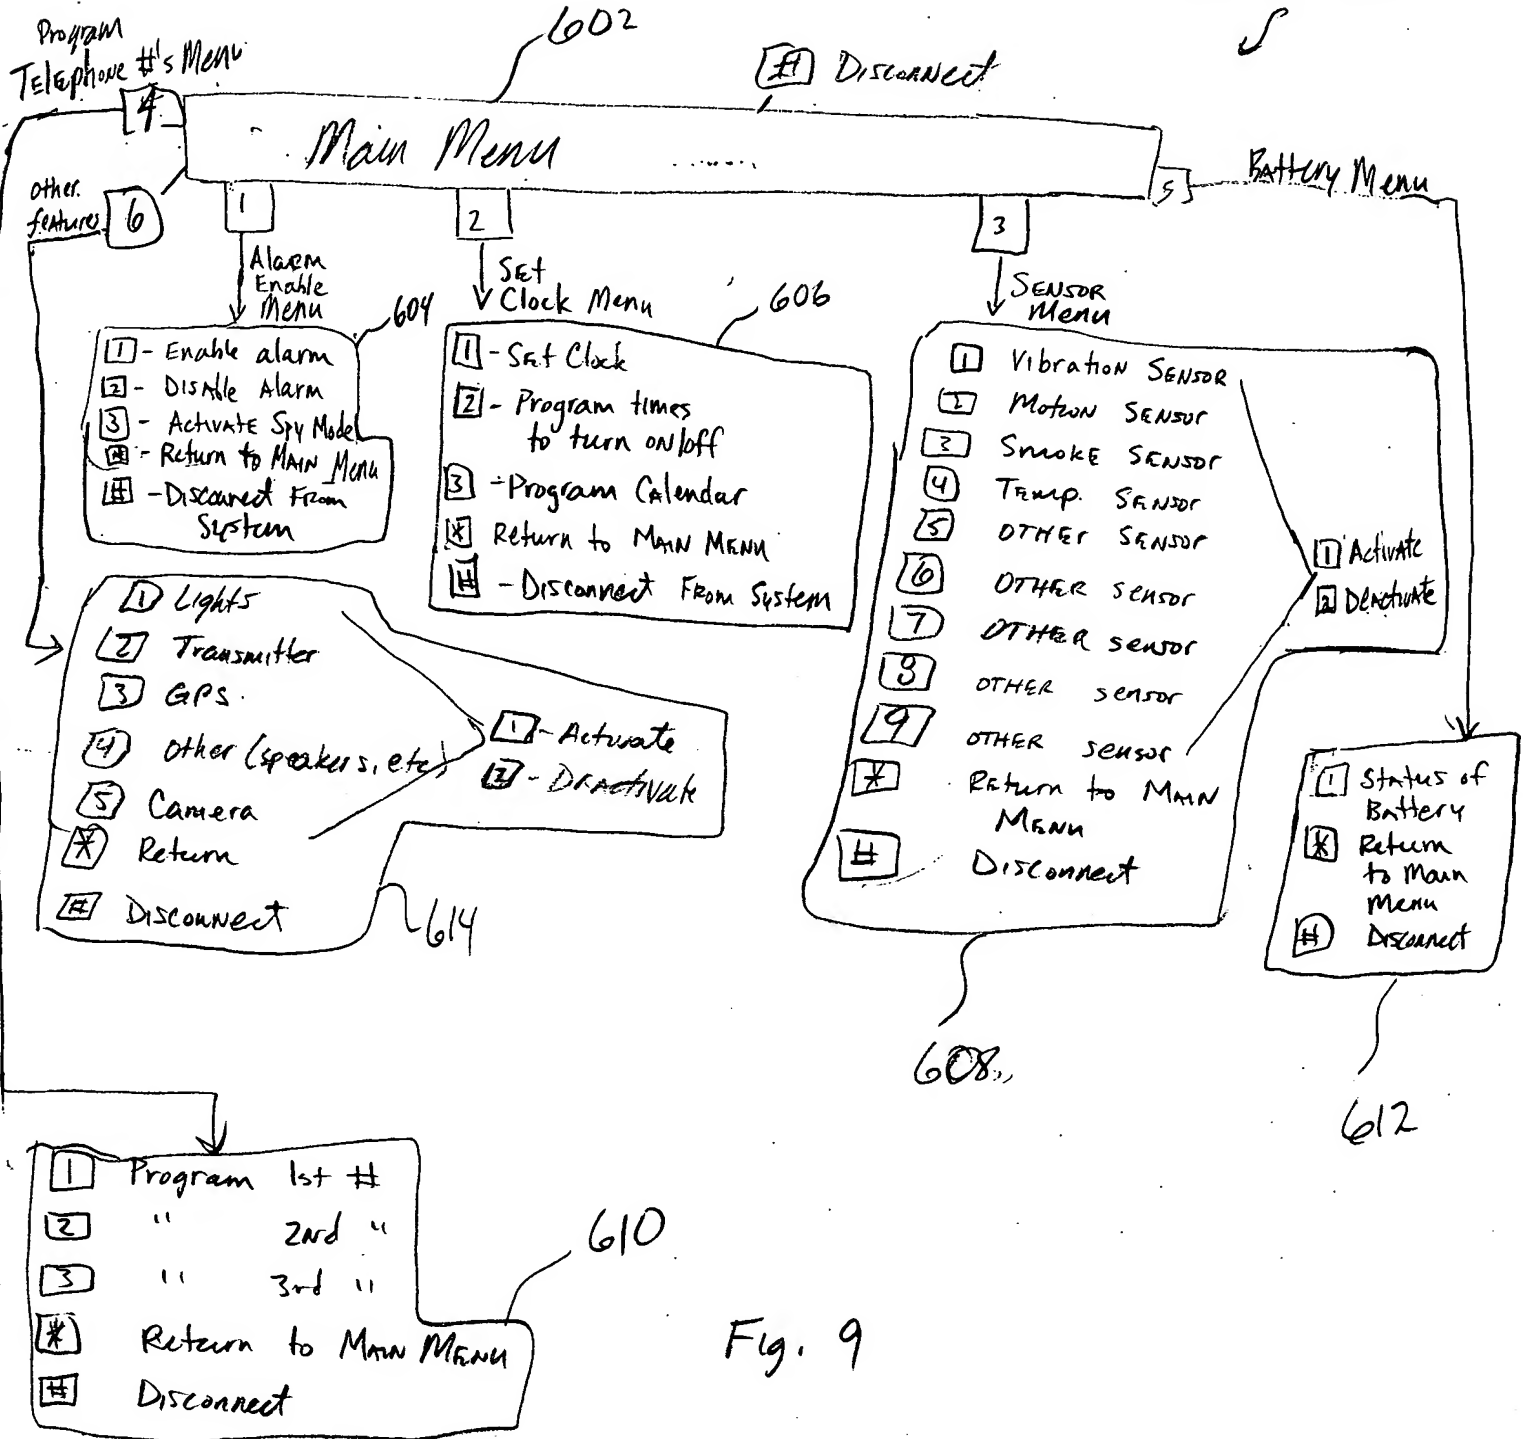 Program
Telephone #'s Menu
602
[#] Disconnect
4
Main Menu
Other
features
6
1
2
3
5
Battery Menu
Alarm
Enable
Menu
604
Set
Clock Menu
606
Sensor
Menu
1 - Enable alarm
2 - Disable Alarm
3 - Activate Spy Mode
* - Return to Main Menu
# - Disconnect From
System
1 - Set Clock
2 - Program times
to turn on/off
3 - Program Calendar
* Return to Main Menu
# - Disconnect From System
1 Vibration Sensor
2 Motion Sensor
3 Smoke Sensor
4 Temp. Sensor
5 Other Sensor
6 Other sensor
7 Other sensor
8 Other sensor
9 Other sensor
* Return to Main
Menu
# Disconnect
1 Activate
2 Deactivate
608
1 Lights
2 Transmitter
3 GPS
4 Other (speakers, etc)
5 Camera
* Return
# Disconnect
1 - Activate
2 - Deactivate
614
1 Status of
Battery
* Return
to Main
Menu
# Disconnect
612
1 Program 1st #
2 " 2nd "
3 " 3rd "
* Return to Main Menu
# Disconnect
610
Fig. 9